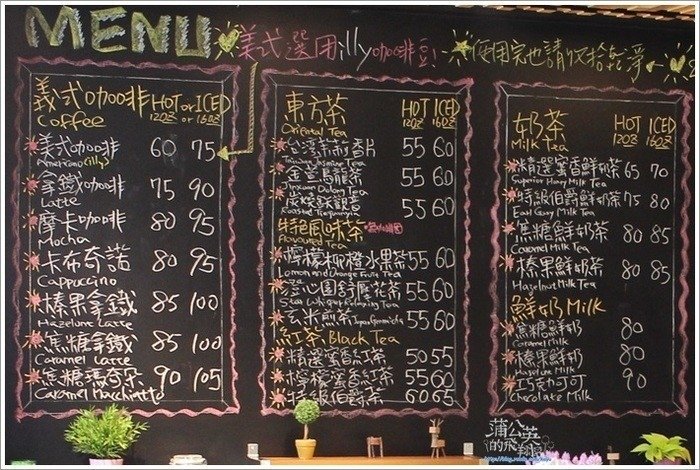 MENU 義式選用illy咖啡豆 使用完也請收拾乾淨
義式咖啡 HOT or ICED
Coffee 12OZ or 16OZ
美式咖啡 60 75
Americano (illy)
拿鐵咖啡 75 90
Latte
摩卡咖啡 80 95
Mocha
卡布奇諾 80 95
Cappuccino
榛果拿鐵 85 100
Hazelnut Latte
焦糖拿鐵 85 100
Caramel Latte
焦糖瑪奇朵 90 105
Caramel Macchiatto
東方茶 HOT ICED
Oriental Tea 12OZ 16OZ
台灣茉莉香片 55 60
Taiwan Jasmine Tea
金萱烏龍茶 55 60
Jinxuan Oolong Tea
炭焙鐵觀音 55 60
Roasted Tieguanyin
特色風味茶
Flavoured Tea
檸檬柳橙水果茶 55 60
Lemon and Orange Fruit Tea
澄心園舒壓花茶 55 60
Relaxing Tea
玄米煎茶 55 60
紅茶 Black Tea
精選蜜香紅茶 50 55
檸檬蜜香紅茶 55 60
特級伯爵茶 60 65
奶茶 HOT ICED
Milk Tea 12OZ 16OZ
精選蜜香鮮奶茶 65 70
Superior Honey Milk Tea
特級伯爵鮮奶茶 75 80
Earl Grey Milk Tea
焦糖鮮奶茶 80 85
Caramel Milk Tea
榛果鮮奶茶 80 85
Hazelnut Milk Tea
鮮奶 Milk
焦糖鮮奶 80
Caramel Milk
榛果鮮奶 80
Hazelnut Milk
巧克力可可 90
Chocolate Milk
蒲公英
的飛翔